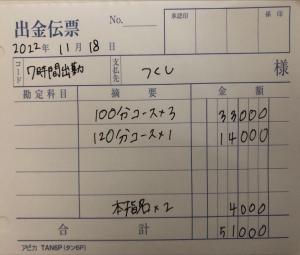 出金伝票 No. 承認印 係印
2022年 11月 18日
コード 7時間出勤 支払先 つくし 様
勘定科目 摘要 金額
100分コース×3 33000
120分コース×1 14000
本指名×2 4000
合計 51000
アピカ TAN6P (タン6P)